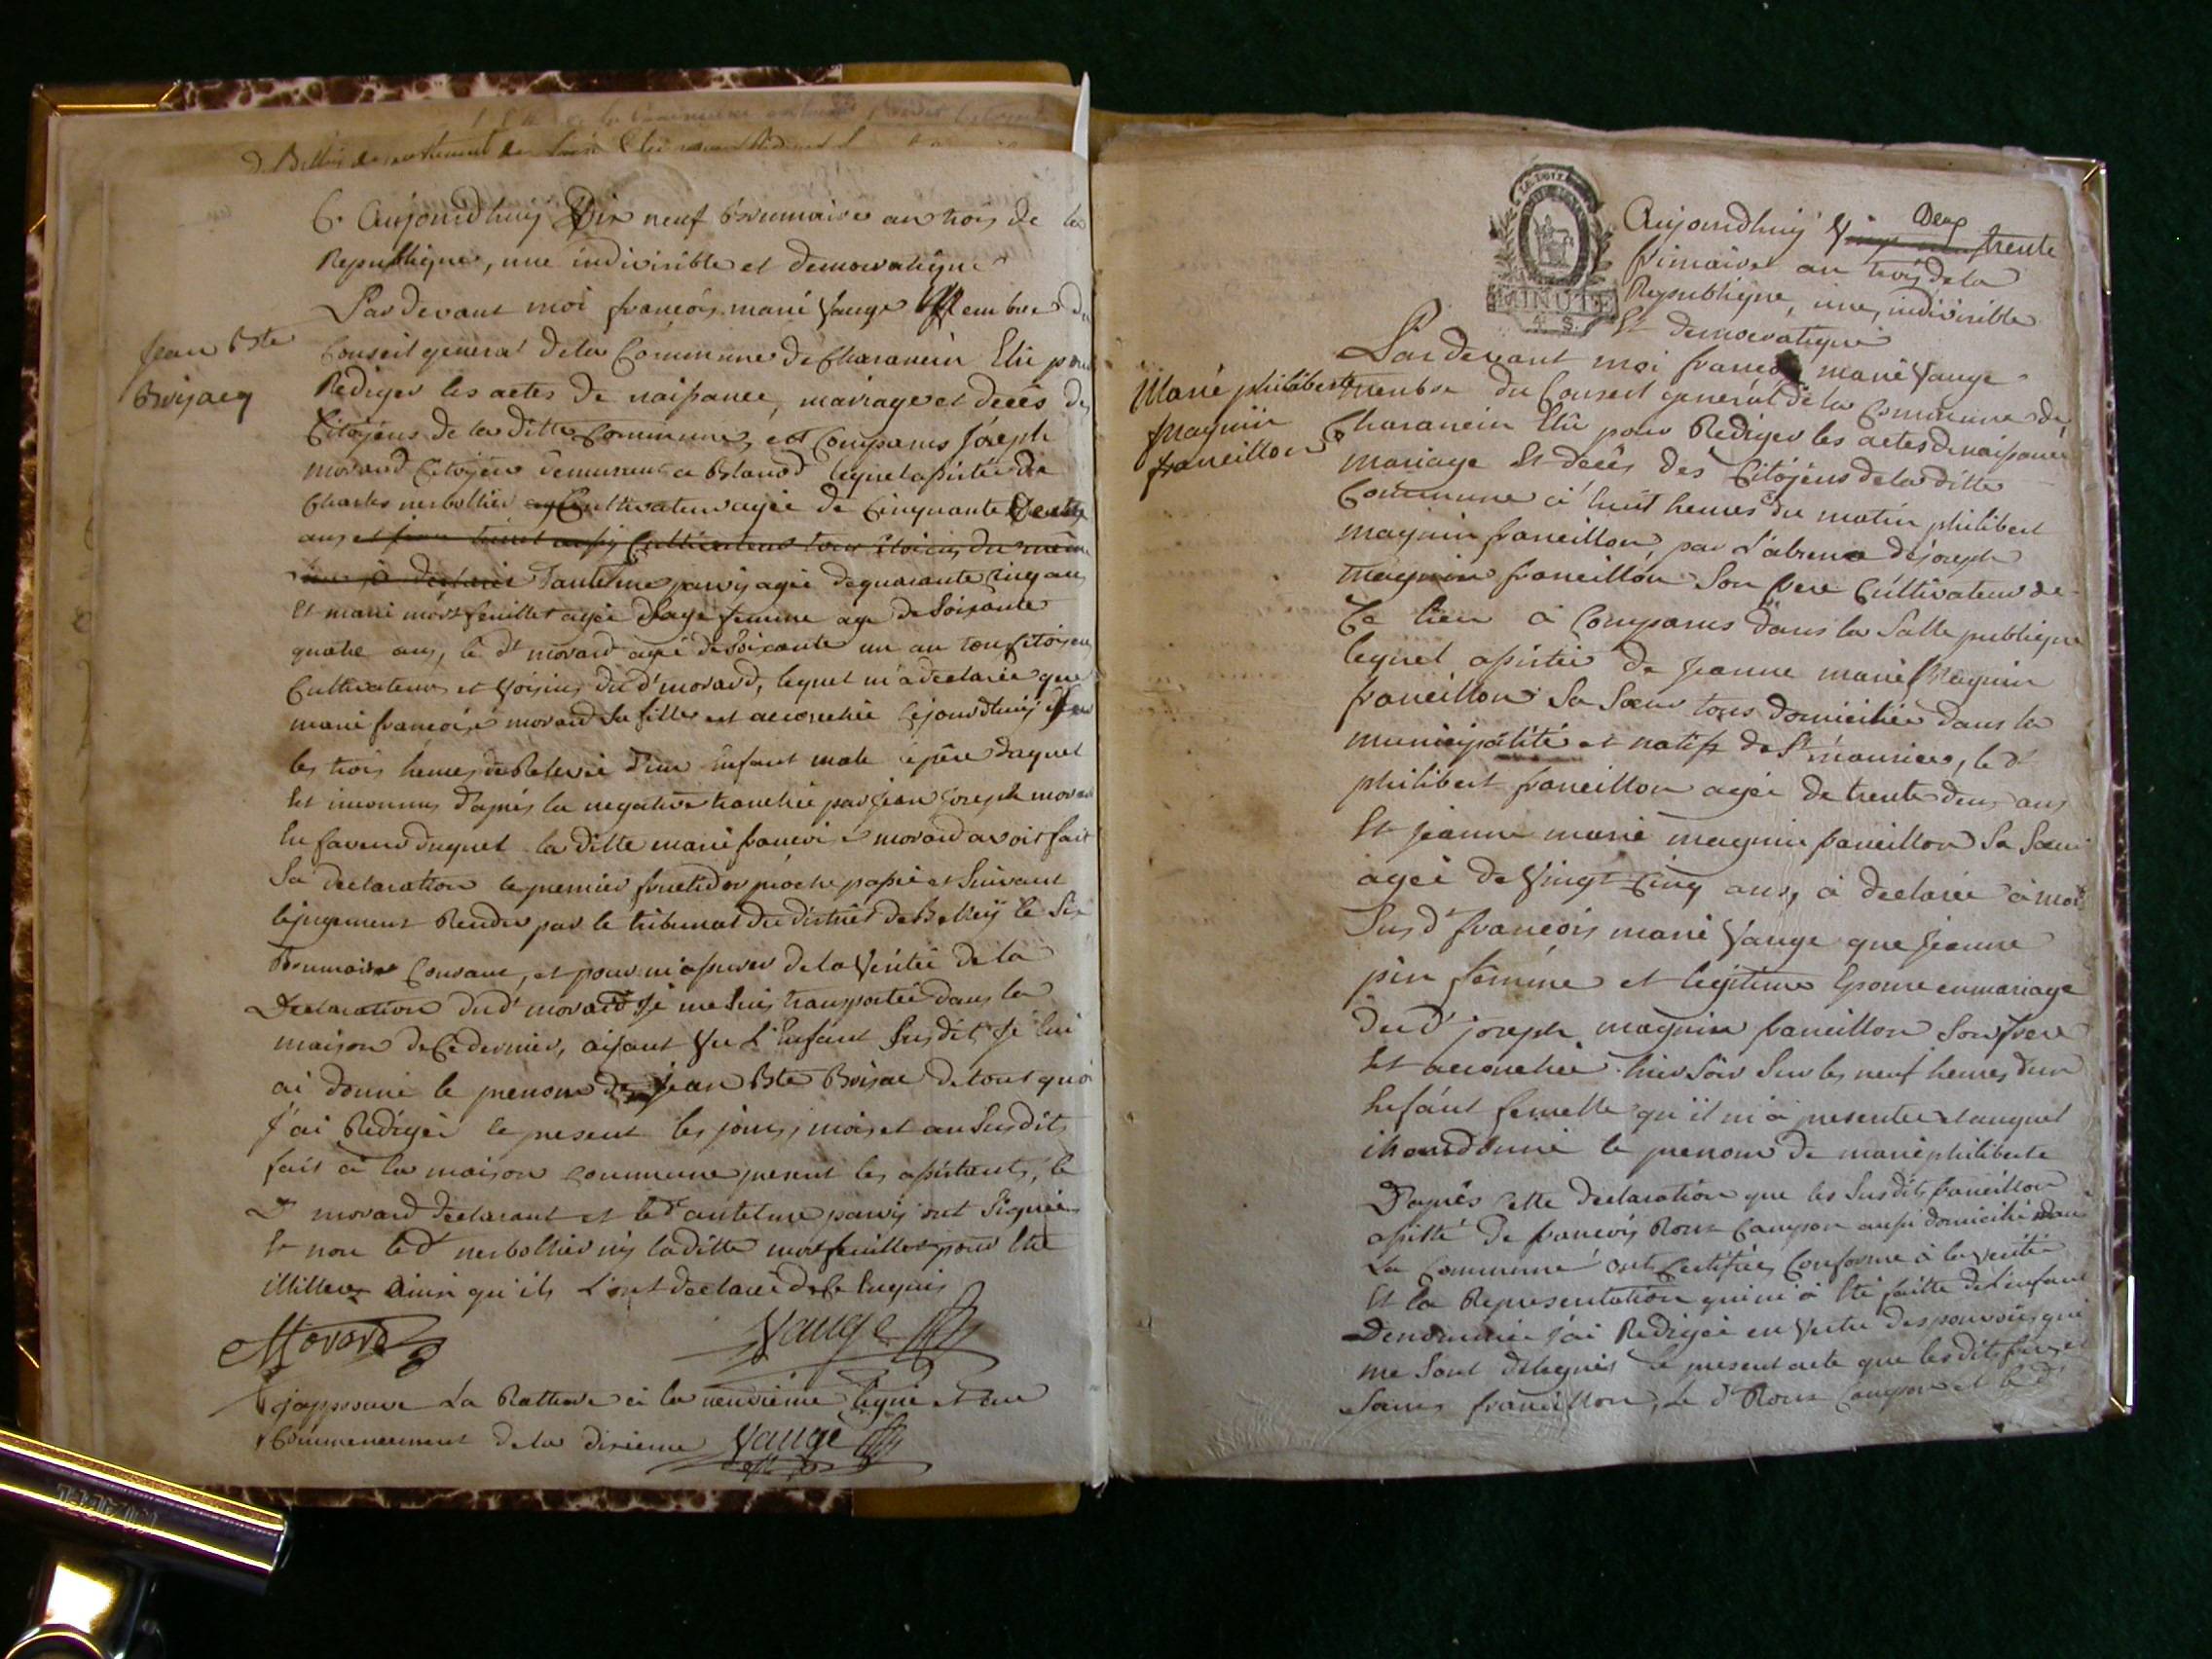 Jean Bte
Boisacq
Ce Aujourdhuij Dix neuf Brumaire an trois de la
Republique, une indivisible et democratique
Pardevant moi francois marie Vauge Membre du
Conseil general dela Commune de Charancin Elu pour
Rediger les actes de naissance, mariage et deces des
Citoÿens de la ditte Commune, est Comparus Joseph
morard Citoÿen demeurant a Blanod lequel assistée de
Charles nerbollier Cultivateur agée de Cinquante
ans et aussy Cultivateur du même
D'antelme parvy agée de quarante cinq ans
Et marie mortfeuillet agée Sage femme age de Soixante
quatre ans, le dt morard agée de Soixante un an tous Citoiens
Cultivateurs et Voisins du dt morard, lequel m'a declarée que
marie francoise morard sa fille est accouchée Cejourdhuij Sur
les trois heures de Relevée d'un Enfant male le père duquel
Est inconnus d'après la negative tranchée par Jean Joseph morard
En faveur duquel la ditte marie francoise morard avoit fait
Sa declaration le premier fructidor proche passé et Suivant
lejugement Rendu par le tribunal du district de Belleÿ le Six
Brumaire Courant, et pour m'assurer de la Véritée de la
Declaration dud' morard Je me Suis transportée dans la
maison de Cedernier, aijant Vu L'Enfant Susdit Je lui
ai donné le prenom de Jean Bte Boisac de tout quoi
J'ai Redigée le present les jours, mois et an Susdits
fait à la maison commune present les assistants, le
dt morard declarant et led' antelme parvy ont Signée
Et non led' nerbollier nij laditte mortfeuillet pour Etre
illitteres Ainsi qu'ils L'ont declarée de Ce Enquis
Morard Vauge
j'approuve La Rature à la neuvieme ligne et au
Commencement de la dixieme Vauge
LA LOI
MINUTE
4. S.
Marie philiberte
Magnin
francillon
Aujourdhuij Deux trente
frimaire an trois de la
Republique, une, indivisible
Et democratique
Pardevant moi francois marie Vauge
membre du Conseil general de la Commune de
Charancin Elu pour Rediger les actes de naissance
mariage Et deces des Citoÿens dela ditte
Commune à huit heures du matin philibert
magnin francillon, par L'absence de joseph
magnin francillon Son frere Cultivateur de
Ce lieu à Comparus dans la Salle publique
lequel assistée de Jeanne marie Magnin
francillon Sa Soeur tous domiciliée dans la
municipalitée et natifs de St maurice, le dt
philibert francillon agée de trente deux ans
Et Jeanne marie magnin francillon Sa Soeur
agée de Vingt Cinq ans, à declarée à moi
Susd' francois marie Vauge que Jeanne
pin fémme et legitime Epouse en mariage
dud' joseph magnin francillon Son frere
Est accouchée hier Soir Sur les neuf heures d'un
Enfant femelle qu'il m'a presentée et auquel
il a donné le prenom de marie philiberte
D'après cette declaration que les Susdits francillon
assisté de francois Roux Campson aussi domicilié dans
La Commune ont Certifiée Conforme à la verité
Et la Representation qui m'a Eté faitte de L'enfant
Denommée J'ai Redigée en Vertu des pouvoirs qui
me Sont delegués le present acte que lesdits freres et
Soeurs francillon, Le dt Roux Campson et le dt